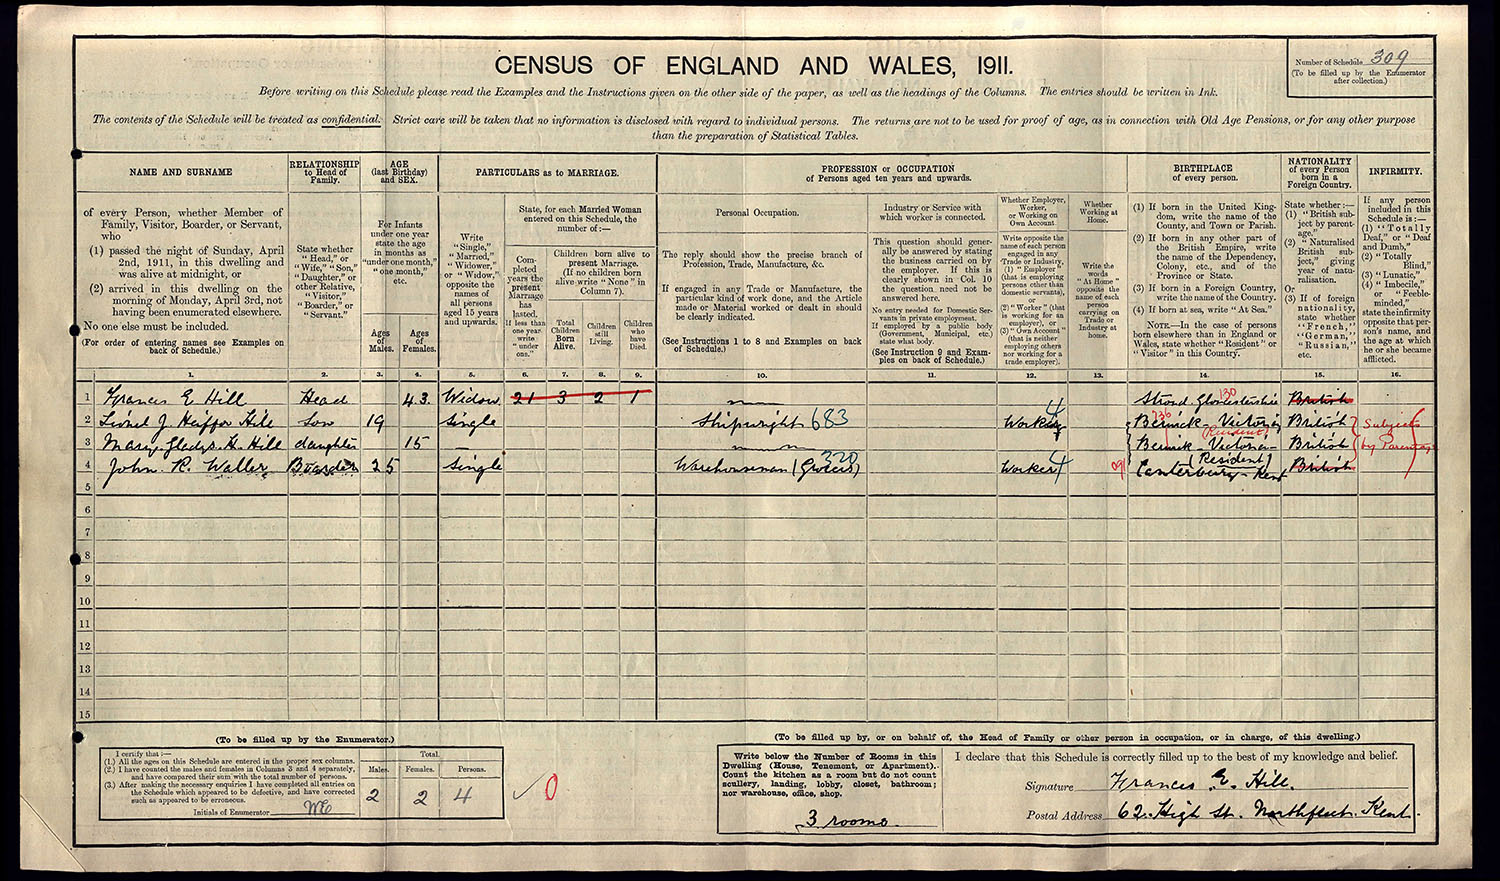 CENSUS OF ENGLAND AND WALES, 1911.
Number of Schedule 309
(To be filled up by the Enumerator
after collection.)
Before writing on this Schedule please read the Examples and the Instructions given on the other side of the paper, as well as the headings of the Columns. The entries should be written in Ink.
The contents of the Schedule will be treated as confidential. Strict care will be taken that no information is disclosed with regard to individual persons. The returns are not to be used for proof of age, as in connection with Old Age Pensions, or for any other purpose
than the preparation of Statistical Tables.
NAME AND SURNAME
of every Person, whether Member of
Family, Visitor, Boarder, or Servant,
who
(1) passed the night of Sunday, April
2nd, 1911, in this dwelling and
was alive at midnight, or
(2) arrived in this dwelling on the
morning of Monday, April 3rd, not
having been enumerated elsewhere.
No one else must be included.
(For order of entering names see Examples on
back of Schedule.)
RELATIONSHIP
to Head of
Family.
State whether
"Head," or
"Wife," "Son,"
"Daughter," or
other Relative,
"Visitor,"
"Boarder," or
"Servant."
AGE
(last Birthday)
and SEX.
For Infants
under one year
state the age
in months as
"under one month,"
"one month,"
etc.
Ages
of
Males.
Ages
of
Females.
PARTICULARS as to MARRIAGE.
Write
"Single,"
"Married,"
"Widower,"
or "Widow,"
opposite the
names of
all persons
aged 15 years
and upwards.
State, for each Married Woman
entered on this Schedule, the
number of:—
Com-
pleted
years the
present
Marriage
has
lasted.
If less than
one year
write
"under
one."
Children born alive to
present Marriage.
(If no children born
alive write "None" in
Column 7).
Total
Children
Born
Alive.
Children
still
Living.
Children
who
have
Died.
PROFESSION or OCCUPATION
of Persons aged ten years and upwards.
Personal Occupation.
The reply should show the precise branch of
Profession, Trade, Manufacture, &c.
If engaged in any Trade or Manufacture, the
particular kind of work done, and the Article
made or Material worked or dealt in should
be clearly indicated.
(See Instructions 1 to 8 and Examples on back
of Schedule.)
Industry or Service with
which worker is connected.
This question should gener-
ally be answered by stating
the business carried on by
the employer. If this is
clearly shown in Col. 10
the question need not be
answered here.
No entry needed for Domestic Ser-
vants in private employment.
If employed by a public body
(Government, Municipal, etc.)
state what body.
(See Instruction 9 and Exam-
ples on back of Schedule.)
Whether Employer,
Worker,
or Working on
Own Account
Write opposite the
name of each person
engaged in any
Trade or Industry,
(1) "Employer"
(that is employing
persons other than
domestic servants),
or
(2) "Worker" (that
is working for an
employer), or
(3) "Own Account"
(that is neither
employing others
nor working for a
trade employer).
Whether
Working at
Home.
Write the
words
"At Home"
opposite the
name of each
person
carrying on
Trade or
Industry at
home.
BIRTHPLACE
of every person.
(1) If born in the United King-
dom, write the name of the
County, and Town or Parish.
(2) If born in any other part of
the British Empire, write
the name of the Dependency,
Colony, etc., and of the
Province or State.
(3) If born in a Foreign Country,
write the name of the Country.
(4) If born at sea, write "At Sea."
NOTE.—In the case of persons
born elsewhere than in England or
Wales, state whether "Resident" or
"Visitor" in this Country.
NATIONALITY
of every Person
born in a
Foreign Country.
State whether:—
(1) "British sub-
ject by parent-
age,"
(2) "Naturalised
British sub-
ject," giving
year of natu-
ralisation.
Or
(3) If of foreign
nationality,
state whether
"French,"
"German,"
"Russian,"
etc.
INFIRMITY.
If any person
included in this
Schedule is:—
(1) "Totally
Deaf," or "Deaf
and Dumb,"
(2) "Totally
Blind,"
(3) "Lunatic,"
(4) "Imbecile,"
or "Feeble-
minded,"
state the infirmity
opposite that per-
son's name, and
the age at which
he or she became
afflicted.
1. 2. 3. 4. 5. 6. 7. 8. 9. 10. 11. 12. 13. 14. 15. 16.
1 Frances E Hill Head 43 Widow 21 3 2 1 Stroud. Gloucestershire 130 British
2 Lionel J. Heiffor Hill Son 19 Single Shipwright 683 Worker 4 Berwick Victoria 736 (Resident) British Subjects
3 Mary Gladys H. Hill daughter 15 Berwick Victoria (Resident) British by Parentage
4 John. R. Waller Boarder 25 Single Warehouseman (Grocers) 320 Worker 4 091 Canterbury Kent British
5
6
7
8
9
10
11
12
13
14
15
(To be filled up by the Enumerator.)
I certify that:—
(1.) All the ages on this Schedule are entered in the proper sex columns.
(2.) I have counted the males and females in Columns 3 and 4 separately,
and have compared their sum with the total number of persons.
(3.) After making the necessary enquiries I have completed all entries on
the Schedule which appeared to be defective, and have corrected
such as appeared to be erroneous.
Initials of Enumerator
Total.
Males. Females. Persons.
2 2 4
0
(To be filled up by, or on behalf of, the Head of Family or other person in occupation, or in charge, of this dwelling.)
Write below the Number of Rooms in this
Dwelling (House, Tenement, or Apartment).
Count the kitchen as a room but do not count
scullery, landing, lobby, closet, bathroom;
nor warehouse, office, shop.
3 rooms
I declare that this Schedule is correctly filled up to the best of my knowledge and belief.
Signature Frances E. Hill.
Postal Address 62. High St. Northfleet. Kent.